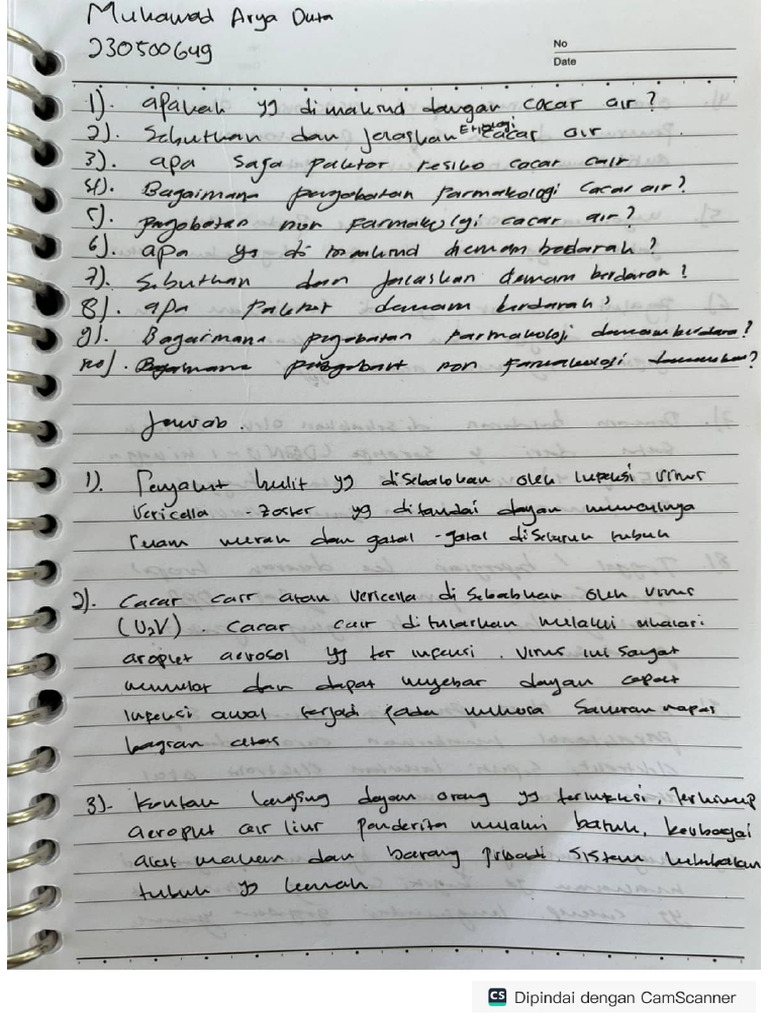 Muhamad Arya Duta
230500649
No
Date
1). apakah yg dimaksud dengan cacar air?
2). Sebutkan dan jelaskan Etiologi cacar air
3). apa saja faktor resiko cacar air
4). Bagaimana pengobatan farmakologi cacar air?
5). pengobatan non farmakologi cacar air?
6). apa yg di maksud demam berdarah?
7). Sebutkan dan jelaskan demam berdarah?
8). apa faktor demam berdarah?
9). Bagaimana pegobatan farmakologi demam berdara?
10). Bagaimana pengobatan non farmakologi
Jawab.
1). Penyakit kulit yg disebabkan oleh infeksi virus
Vericella - Zoster yg ditandai dengan munculnya
ruam merah dan gatal - gatal diseluruh tubuh
2). Cacar cair atau Vericella di sebabkan oleh virus
(VZV). cacar cair ditularkan melalui
droplet aerosol yg ter infeksi. virus ini sangat
menular dan dapat menyebar dengan cepat
infeksi awal terjadi pada mukosa saluran napas
bagian atas
3). Kontak langsung dengan orang yg terinfeksi, Terhirup
air liur penderita melalui batuk, berbagai
alat makan dan barang pribadi. sistem kekebalan
tubuh yg lemah
CS Dipindai dengan CamScanner